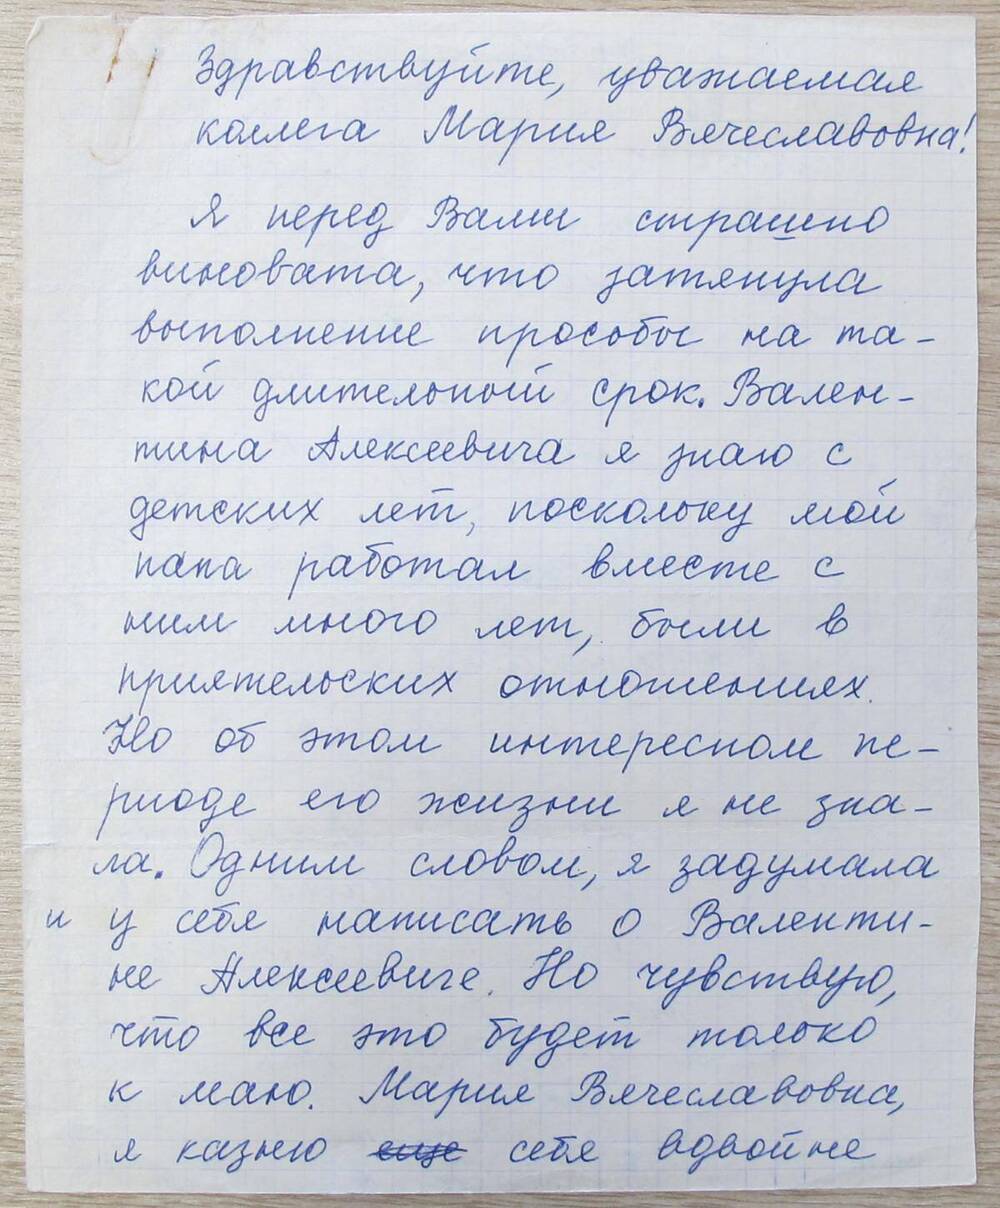 Здравствуйте, уважаемая
коллега Мария Вячеславовна!
Я перед Вами страшно
виновата, что затянула
выполнение просьбы на та-
кой длительный срок. Вален-
тина Алексеевича я знаю с
детских лет, поскольку мой
папа работал вместе с
ним много лет, были в
приятельских отношениях.
Но об этом интересном пе-
риоде его жизни я не зна-
ла. Одним словом, я задумала
и у себя написать о Валенти-
не Алексеевиче. Но чувствую,
что все это будет только
к маю. Мария Вячеславовна,
я казню еще себя вдвойне